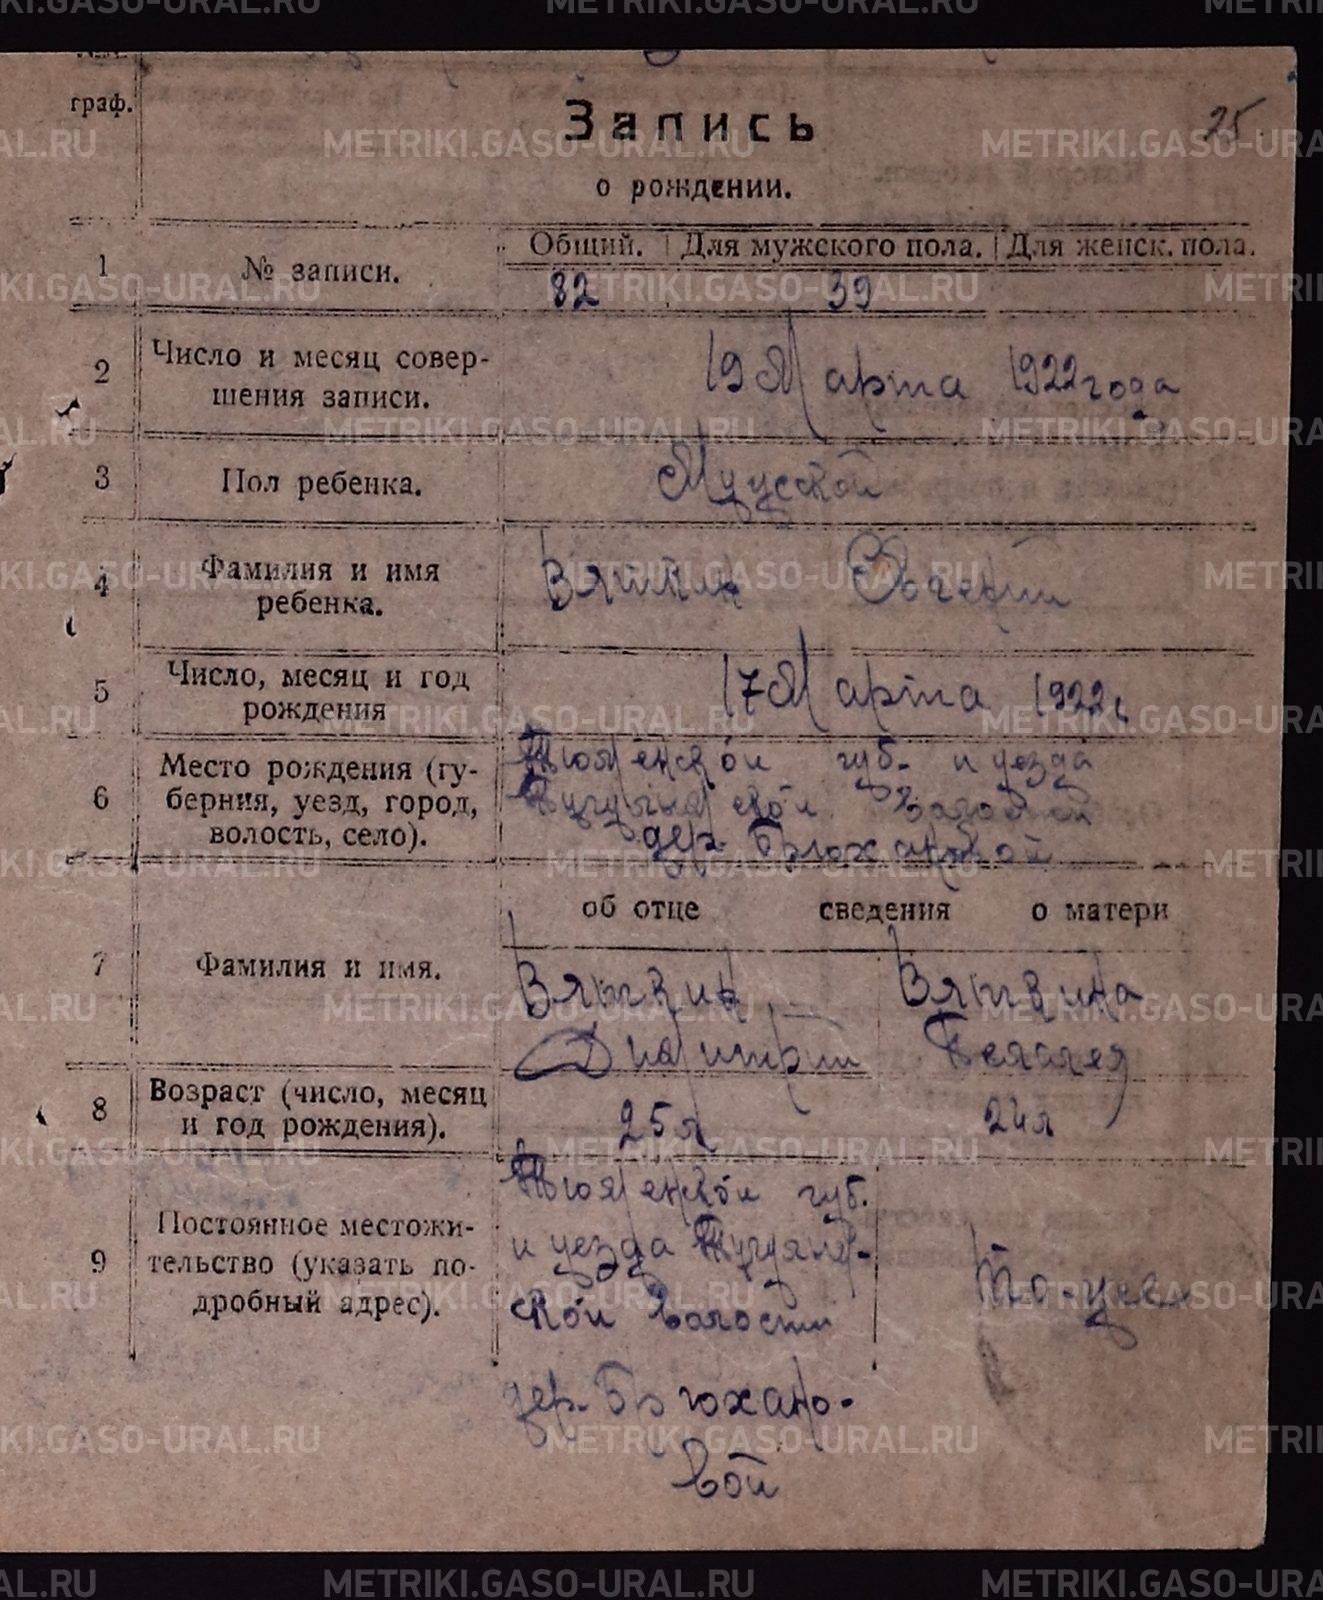 граф.
Запись
25
о рождении.
1
№ записи.
Общий. Для мужского пола. Для женск. пола.
82 39
2
Число и месяц совер-
шения записи.
19 Марта 1922 года
3
Пол ребенка.
Мужской
4
Фамилия и имя
ребенка.
Вяткин Евгений
5
Число, месяц и год
рождения
17 Марта 1922 г
6
Место рождения (гу-
берния, уезд, город,
волость, село).
Тюменской губ. и уезда
волости
дер. Брюхановой
об отце сведения о матери
7
Фамилия и имя.
Вяткин Вяткина
Димитрий
8
Возраст (число, месяц
и год рождения).
25 л 24 л
9
Постоянное местожи-
тельство (указать по-
дробный адрес).
Тюменской губ.
и уезда
ской волости
дер. Брюхано-
вой
METRIKI.GASO-URAL.RU